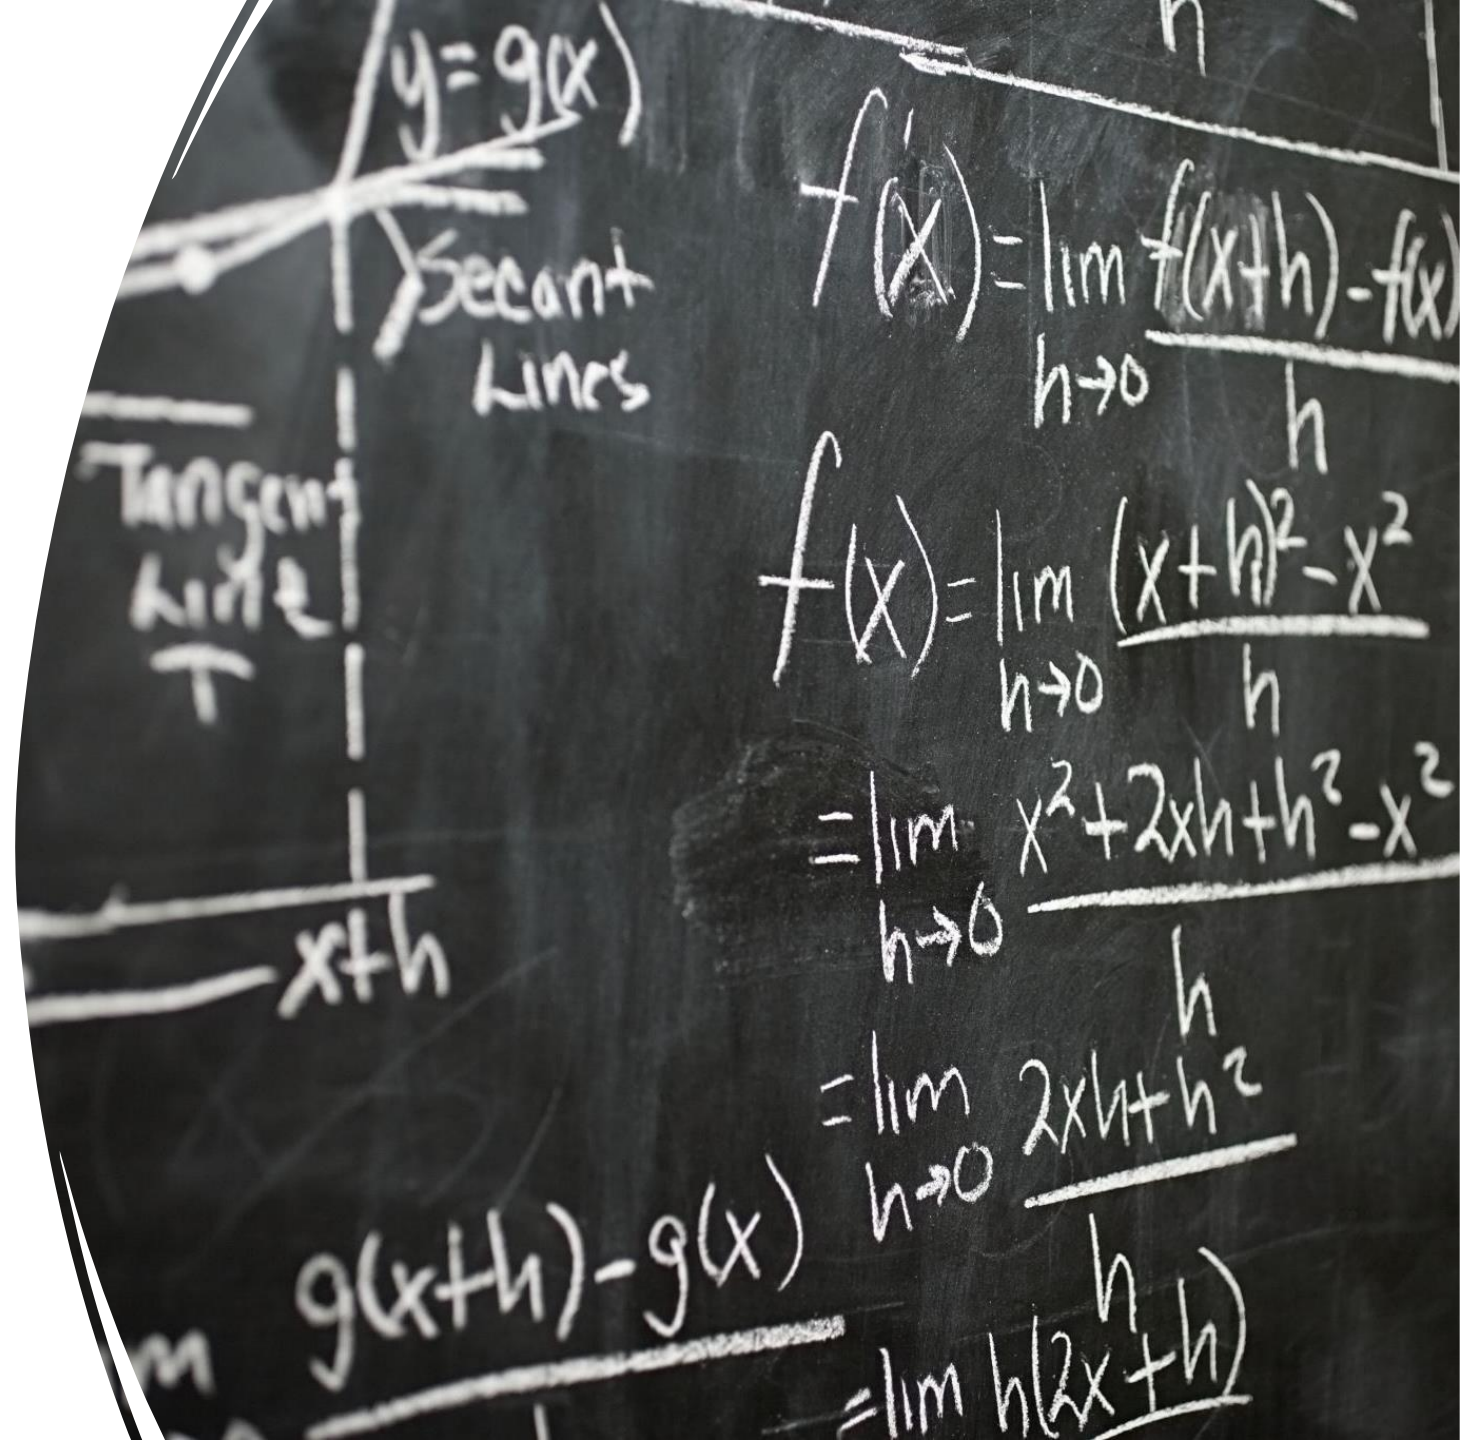 y=g(x)
Secant
Lines
Tangent
Line
T
x+h
g(x+h)-g(x)
h
f'(x)=lim f(x+h)-f(x)
h→0 h
f(x)=lim (x+h)²-x²
h→0 h
=lim x²+2xh+h²-x²
h→0 h
=lim 2xh+h²
h→0 h
=lim h(2x+h)